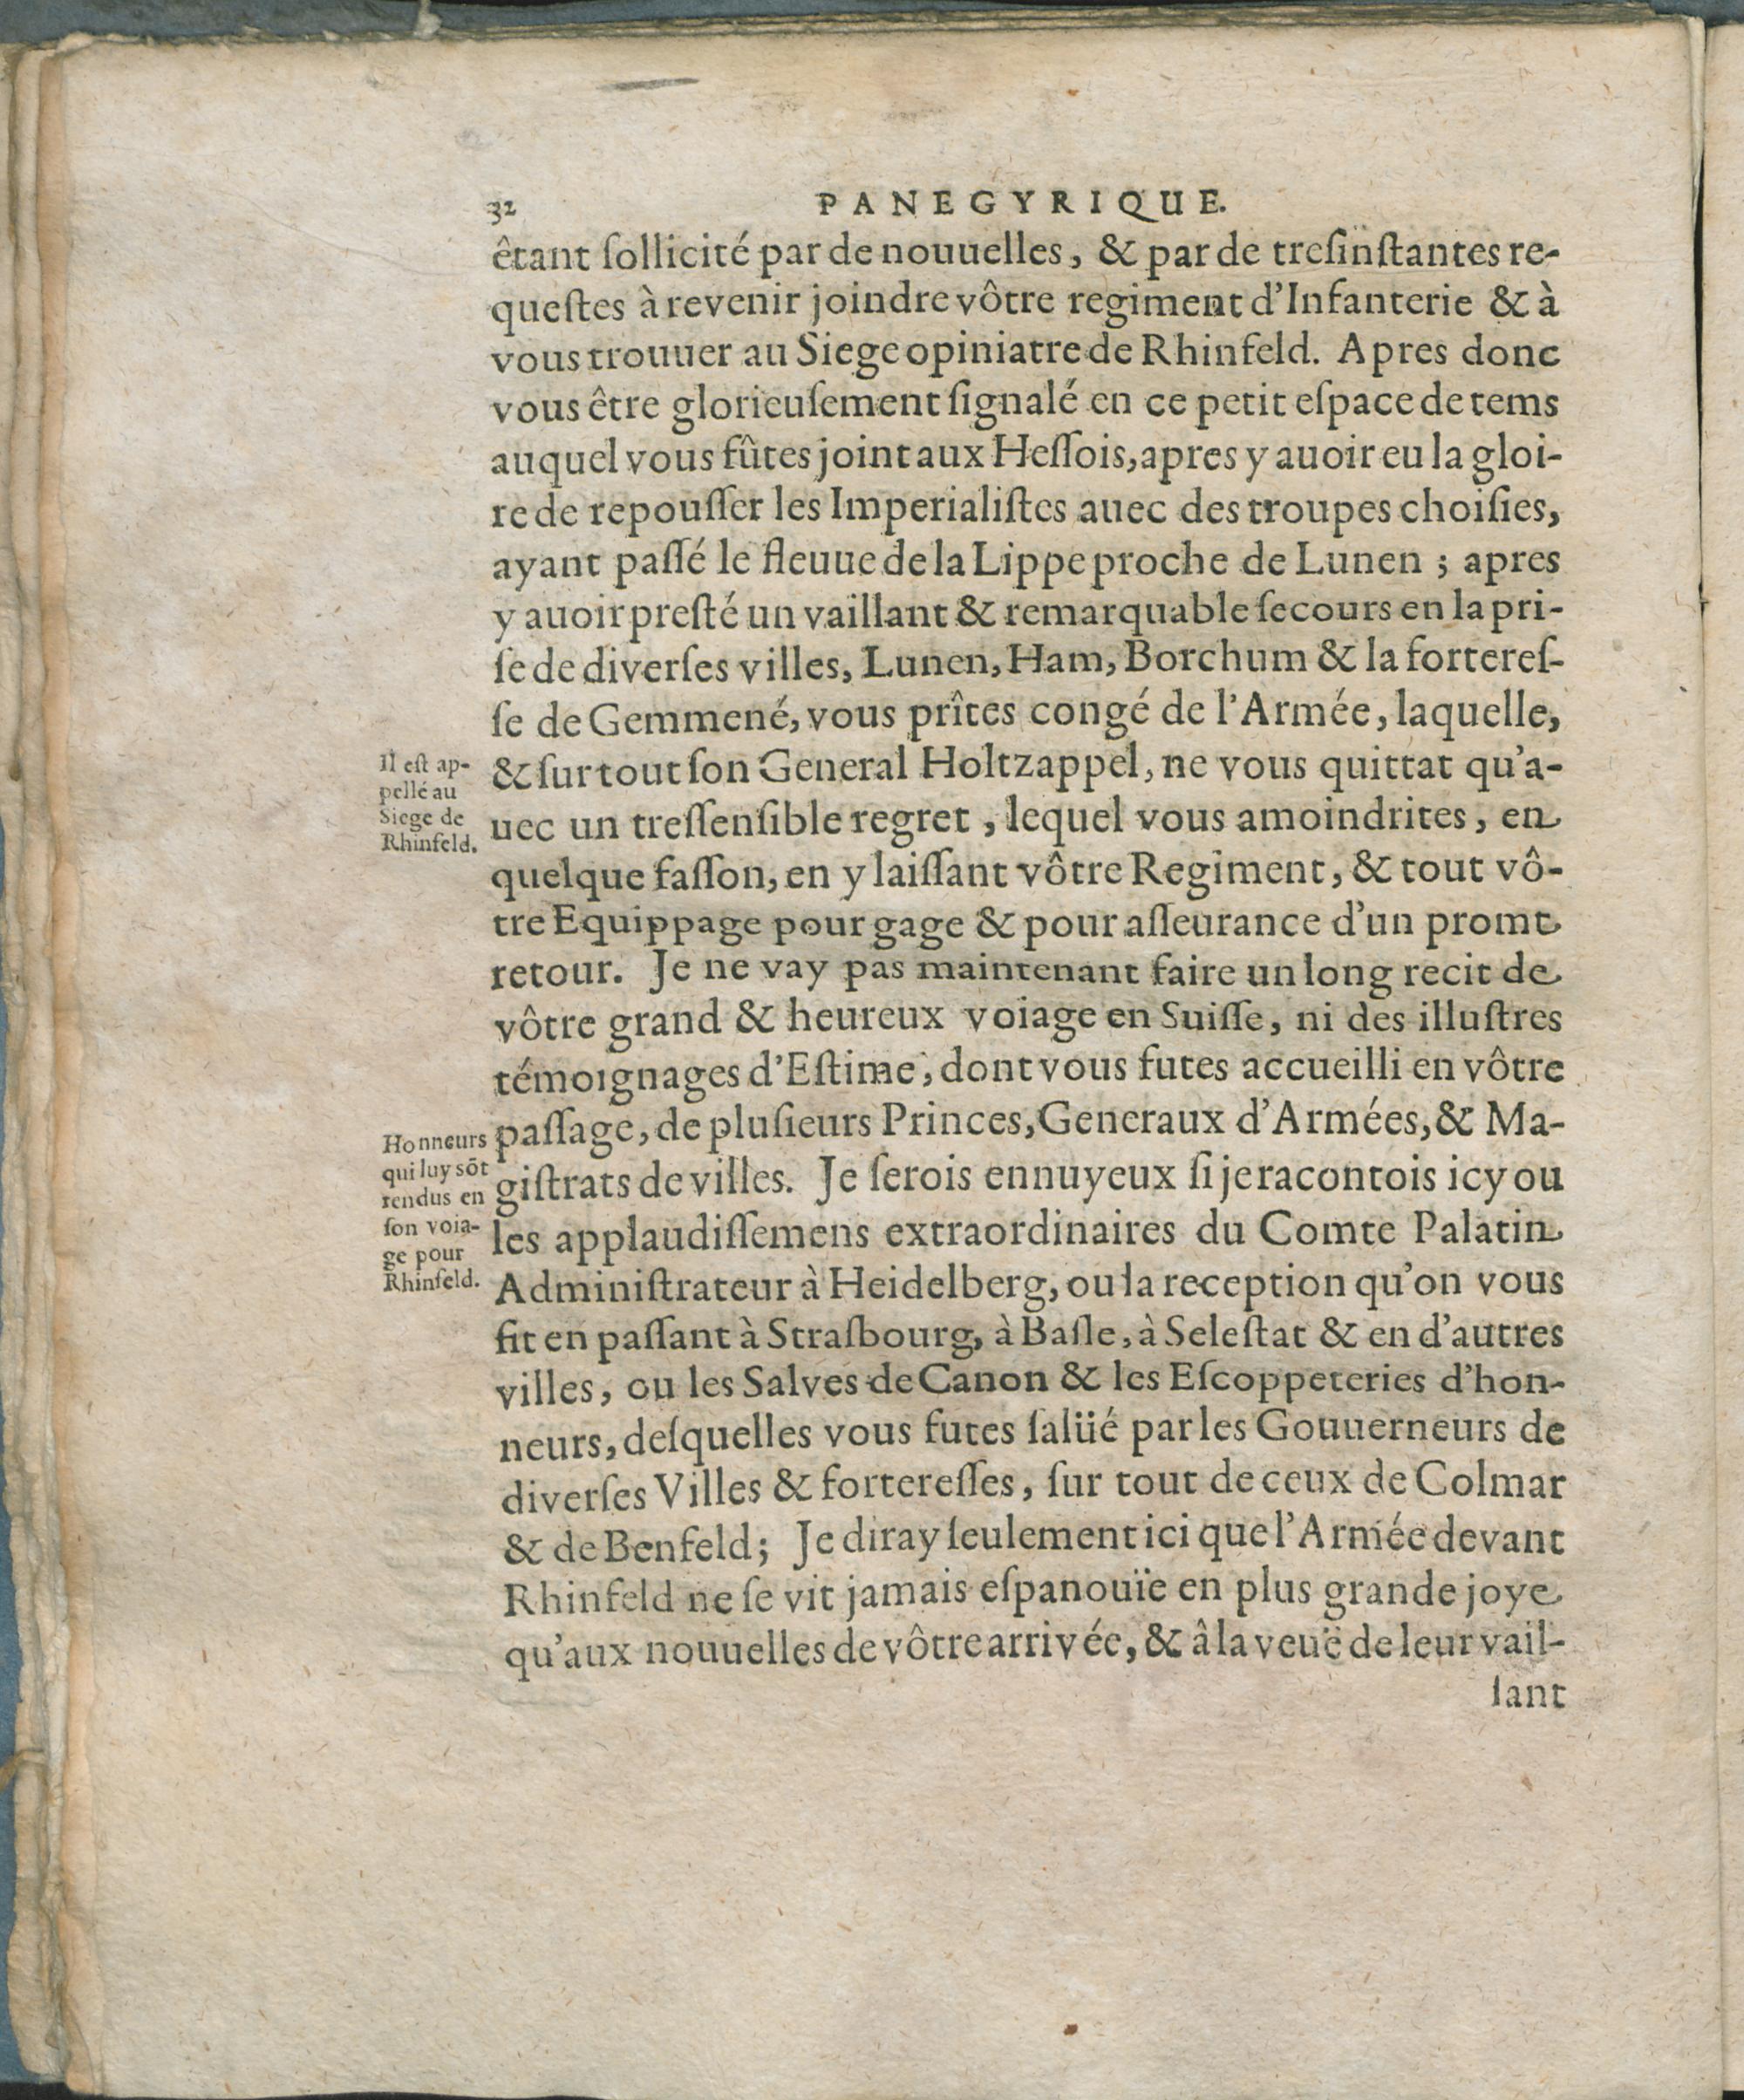 32 PANEGYRIQUE.
êtant ſollicité par de nouuelles, & par de treſinſtantes re-
queſtes à revenir joindre vôtre regiment d'Infanterie & à
vous trouuer au Siege opiniatre de Rhinfeld. Apres donc
vous être glorieuſement ſignalé en ce petit eſpace de tems
auquel vous fûtes joint aux Heſſois, apres y auoir eu la gloi-
re de repouſſer les Imperialiſtes auec des troupes choiſies,
ayant paſſé le fleuue de la Lippe proche de Lunen ; apres
y auoir preſté un vaillant & remarquable ſecours en la pri-
ſe de diverſes villes, Lunen, Ham, Borchum & la fortereſ-
ſe de Gemmené, vous prîtes congé de l'Armée, laquelle,
& ſur tout ſon General Holtzappel, ne vous quittat qu'a-
uec un treſſenſible regret, lequel vous amoindrites, en
quelque faſſon, en y laiſſant vôtre Regiment, & tout vô-
tre Equippage pour gage & pour aſſeurance d'un promt
retour. Je ne vay pas maintenant faire un long recit de
vôtre grand & heureux voiage en Suiſſe, ni des illuſtres
témoignages d'Eſtime, dont vous futes accueilli en vôtre
paſſage, de pluſieurs Princes, Generaux d'Armées, & Ma-
giſtrats de villes. Je ſerois ennuyeux ſi je racontois icy ou
les applaudiſſemens extraordinaires du Comte Palatin
Adminiſtrateur à Heidelberg, ou la reception qu'on vous
fit en paſſant à Straſbourg, à Baſle, à Seleſtat & en d'autres
villes, ou les Salves de Canon & les Eſcoppeteries d'hon-
neurs, deſquelles vous futes ſalüé par les Gouuerneurs de
diverſes Villes & fortereſſes, ſur tout de ceux de Colmar
& de Benfeld; Je diray ſeulement ici que l'Armée devant
Rhinfeld ne ſe vit jamais eſpanouïe en plus grande joye
qu'aux nouuelles de vôtre arrivée, & â la veuë de leur vail-
lant
Il eſt ap-
pellé au
Siege de
Rhinfeld.
Honneurs
qui luy sõt
rendus en
ſon voia-
ge pour
Rhinfeld.